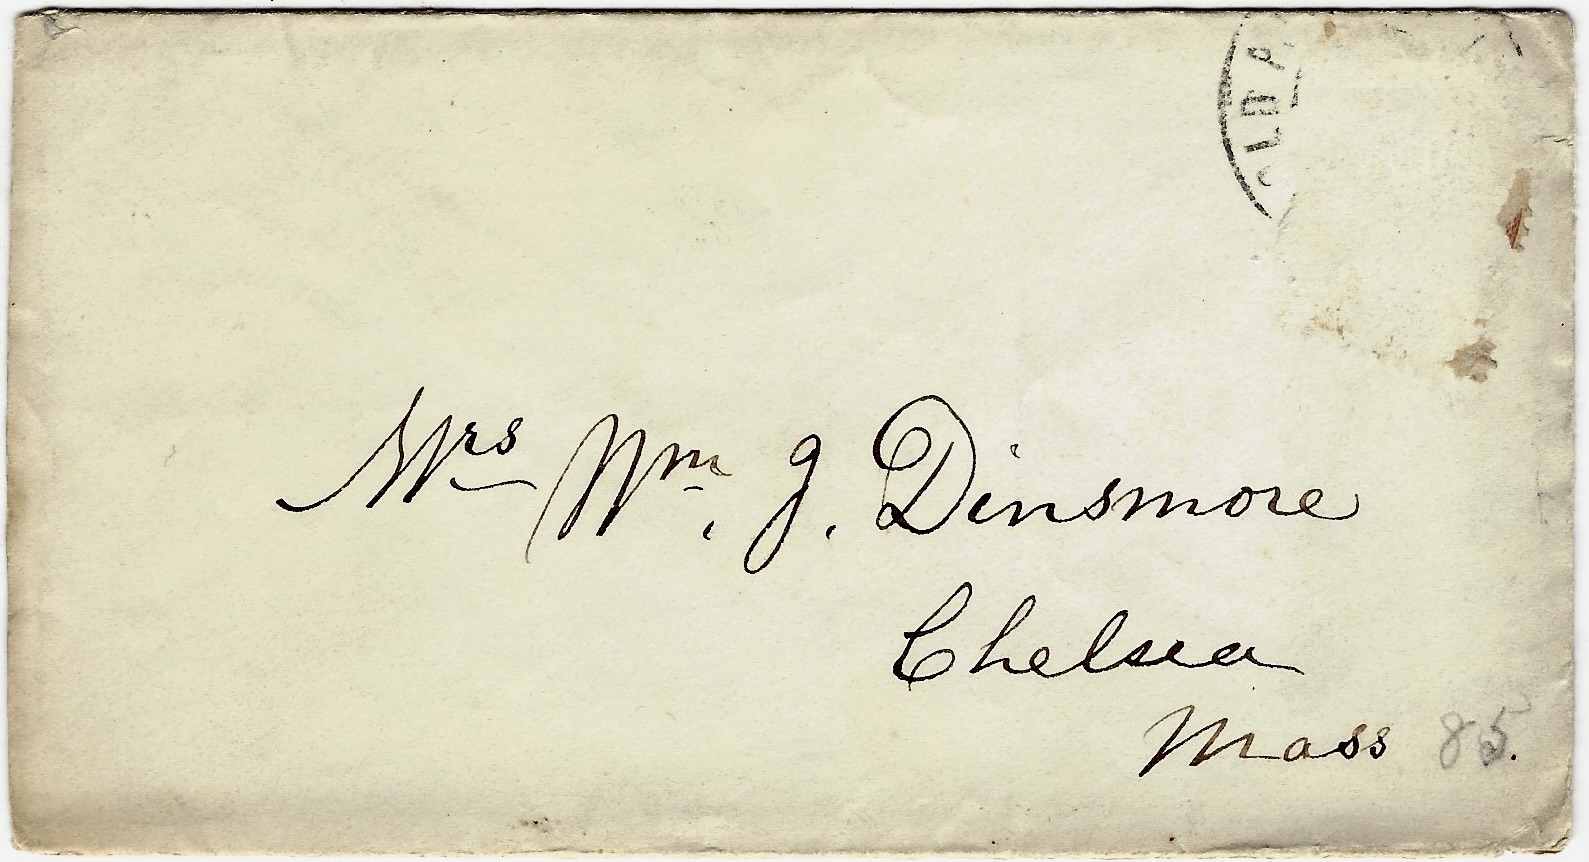 Mrs Wm. J. Dinsmore
Chelsea
Mass 85.